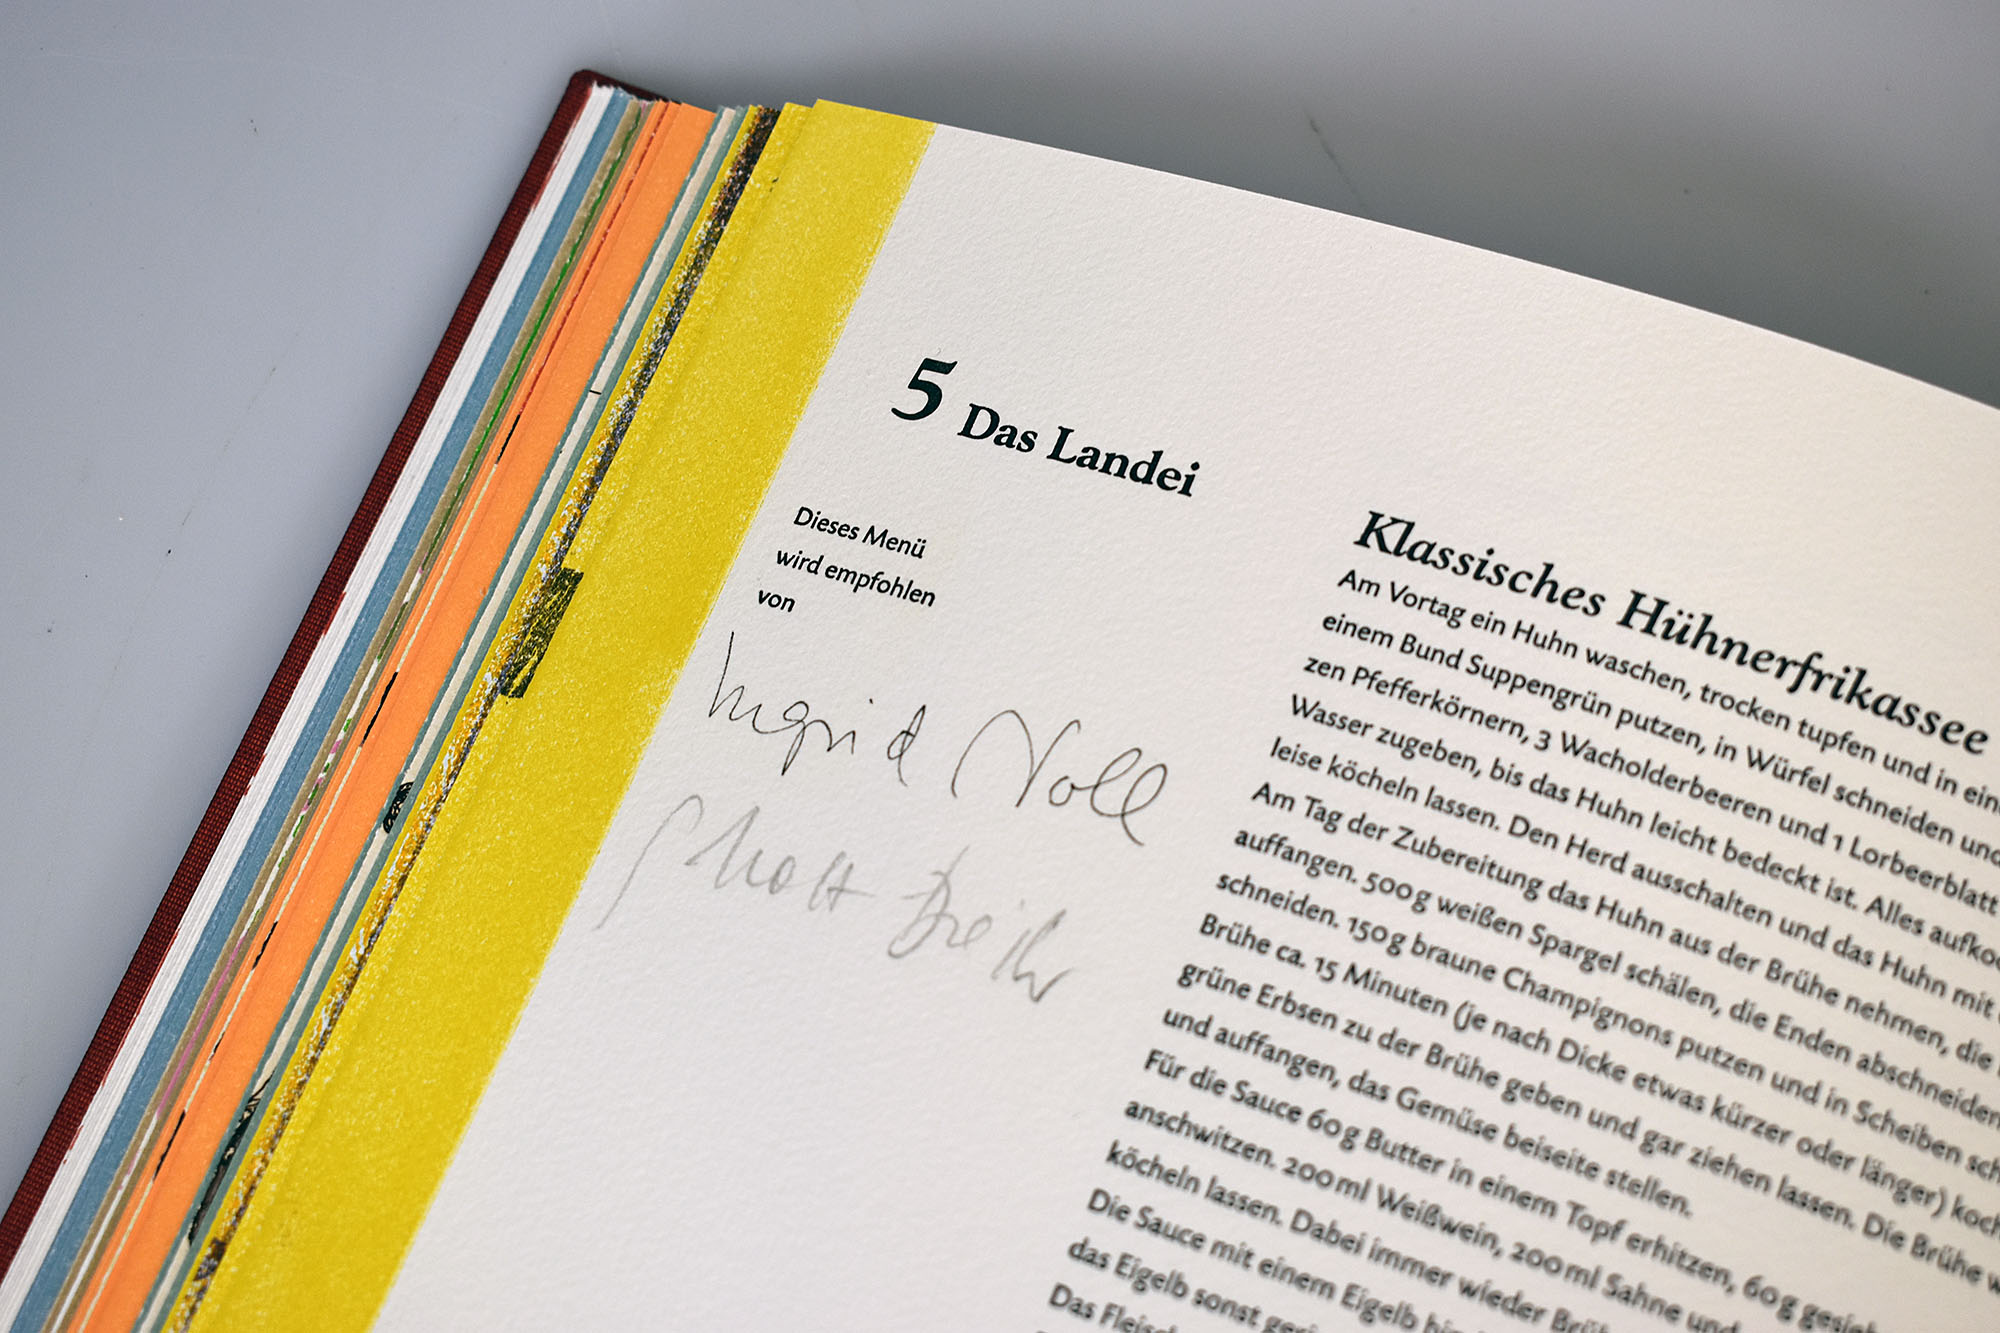 5 Das Landei
Dieses Menü
wird empfohlen
von
Ingrid Noll
Klassisches Hühnerfrikassee
Am Vortag ein Huhn waschen, trocken tupfen und in ein
einem Bund Suppengrün putzen, in Würfel schneiden und
zen Pfefferkörnern, 3 Wacholderbeeren und 1 Lorbeerblatt
Wasser zugeben, bis das Huhn leicht bedeckt ist. Alles aufkoc
leise köcheln lassen. Den Herd ausschalten und das Huhn mit
Am Tag der Zubereitung das Huhn aus der Brühe nehmen, die
auffangen. 500 g weißen Spargel schälen, die Enden abschneiden
schneiden. 150 g braune Champignons putzen und in Scheiben sch
Brühe ca. 15 Minuten (je nach Dicke etwas kürzer oder länger) koch
grüne Erbsen zu der Brühe geben und gar ziehen lassen. Die Brühe
und auffangen, das Gemüse beiseite stellen.
Für die Sauce 60 g Butter in einem Topf erhitzen, 60 g gesieb
anschwitzen. 200 ml Weißwein, 200 ml Sahne und
köcheln lassen. Dabei immer wieder Brüh
Die Sauce mit einem Eigelb
das Eigelb sonst
Das Fleisch